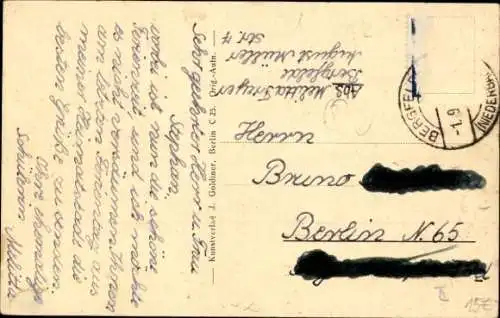 Sehr geehrter Herr u. Frau
Stephan.
Vorbei ist nun die schöne
Ferienzeit, und ich möchte
es nicht versäumen Ihnen
am letzten Ferientag aus
meiner Heimatstadt die
besten Grüße zu senden.
Ihre ehemalige
Schülerin Melitta
Kunstverlag J. Goldiner, Berlin C 25. Orig.-Aufn.
Abs. Melitta
Bergfelde
August Müller
Str. 7
BERGFELDE
(NIEDERB
-1.9
Herrn
Bruno
Berlin N. 65
15€